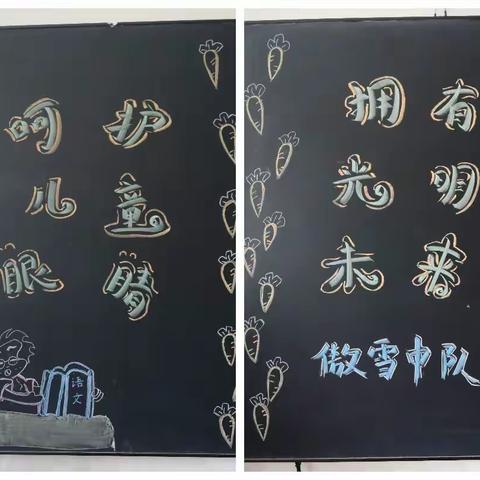 呵护
儿童
眼睛
语文
拥有
光明
未来
傲雪中队